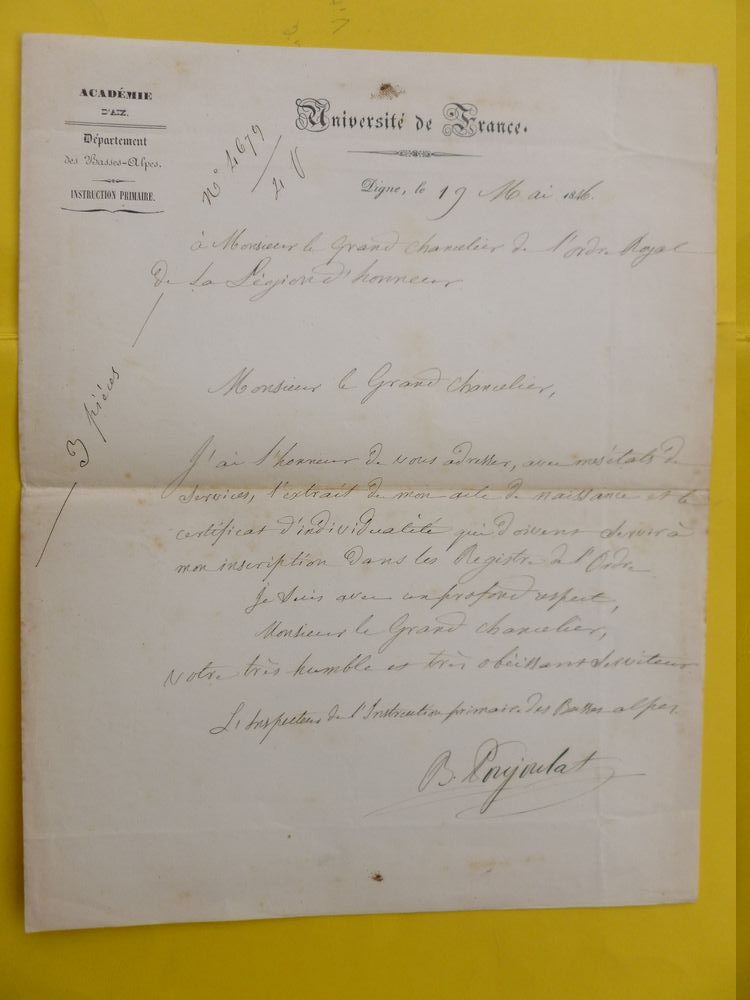 ACADÉMIE
D'AIX.
Département
des Basses-Alpes.
INSTRUCTION PRIMAIRE.
Université de France.
N° 4679
4 V
Digne, le 19 Mai 1846.
à Monsieur le Grand chancelier de l'ordre Royal
de La Légion d'honneur
3 pièces
Monsieur le Grand chancelier,
J'ai l'honneur de vous adresser, avec mes états de
services, l'extrait de mon acte de naissance et le
certificat d'individualité qui doivent servir à
mon inscription dans les Registre de l'Ordre
Je suis avec un profond respect,
Monsieur le Grand chancelier,
votre très humble et très obéissant serviteur
L'Inspecteur de l'Instruction primaire des Basses alpes
B. Poujoulat